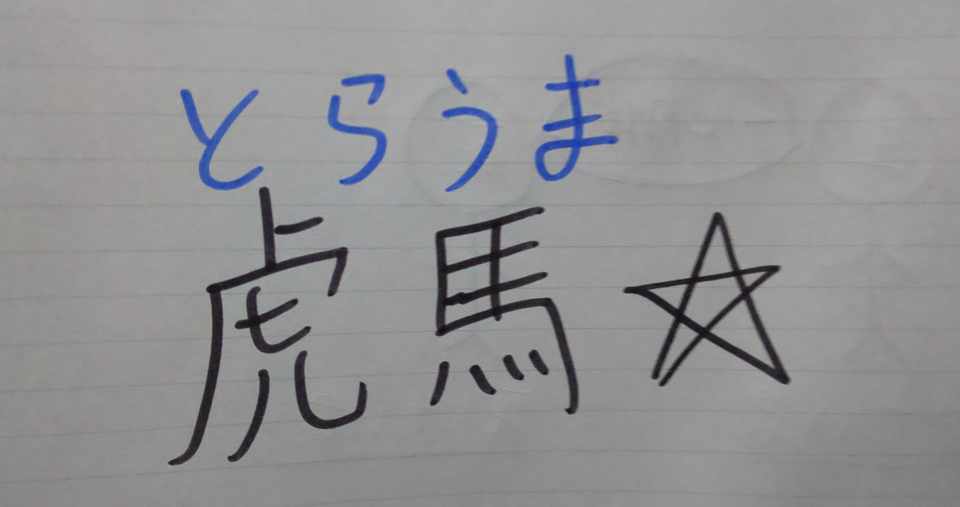 とらうま
虎馬☆